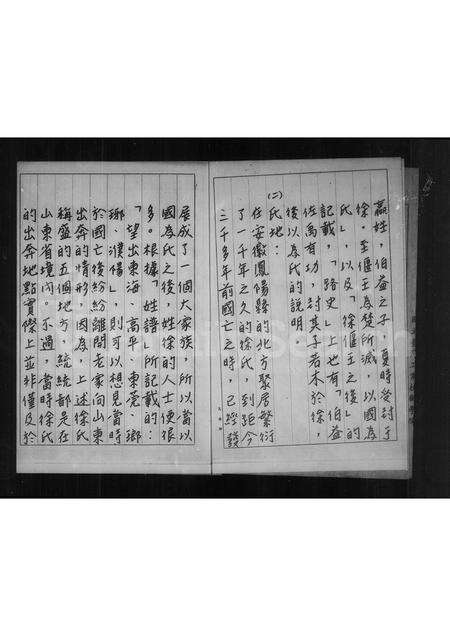 嬴姓，伯益之子，夏時發封于
徐，至偃王為楚所滅，以國為
氏」，以及「徐偃王之後」的
記載，「路史」上也有「伯益
佐禹有功，封其子若木於徐，
後以為氏」的說明
(二)氏地：
在安徽鳳陽縣的北方聚居繁衍
了一千年之久的徐氏，到距今
三千多年前國亡之時，已經發
展成了一個大家族，所以當以
國為氏之後，姓徐的人士便很
多。根據「姓譜」所記載的：
「望出東海、高平、東莞、瑯
琊、濮陽」，則可以想見當時
於國亡後紛紛離開老家向山東
出奔的情形，因為，上述徐氏
稱盛的五個地方，統統都是在
山東省境內。不過，當時徐氏
的出奔地點實際上並非僅及於